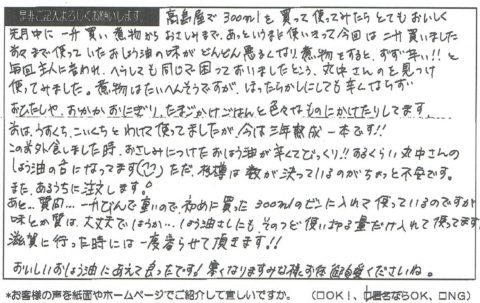 是非ご記入よろしくお願いします。
高島屋で300mlを買って使ってみたらとてもおいしく
先月中に一升買い煮物からおさしみまで、あっというまに使いきって今回は二升買いました
今まで使っていたおしょう油の味がどんどん悪くなり煮物をすると、すず辛い!!と
毎回主人に言われ、へらしても同じで困っておいましたところ、丸中さんのを見つけ
使ってみました。煮物はたいへんそうですが、ほったらかしにしても辛くならず
おひたしや、おかかおにぎり、たまごかけごはんと色々なものにかけたりしてます。
前は、うすくち、こいくちとわけて使ってましたが、今は三年熟成一本です!!
この前外食しました時、おさしみにつけたおしょう油が辛くてびっくり!!あるくらい丸中さんの
しょう油の舌になってます ただ、杉樽は数が決っているのがちょっと不安です。
また、あるうちに注文します。
あと…質問…一升びんで重いので、初めに買った300mlのビンに入れて使っているのですが
味とか質は、大丈夫でしょうか…しょう油さしにも、そのつど使い切る量だけ入れて使ってます
滋賀に行った時には一度寄らせて頂きます!!
おいしいおしょう油にあえて良かったです!寒くなりますがみな様お体御自愛くださいね。
*お客様の声を紙面やホームページでご紹介して宜しいですか。 (□OK、□匿名ならOK、□NG)